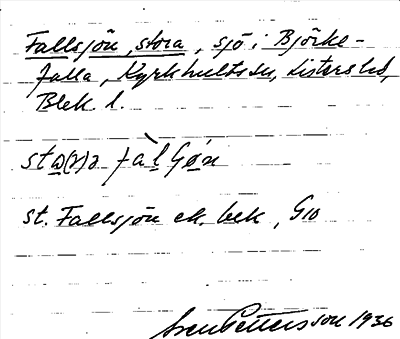 Fallsjön, stora, sjö i Björke-
falla, Kyrkhults sn, Listers hd,
Blek. l.
st. Fallsjön ek. bek, G10
Sven Pettersson 1936